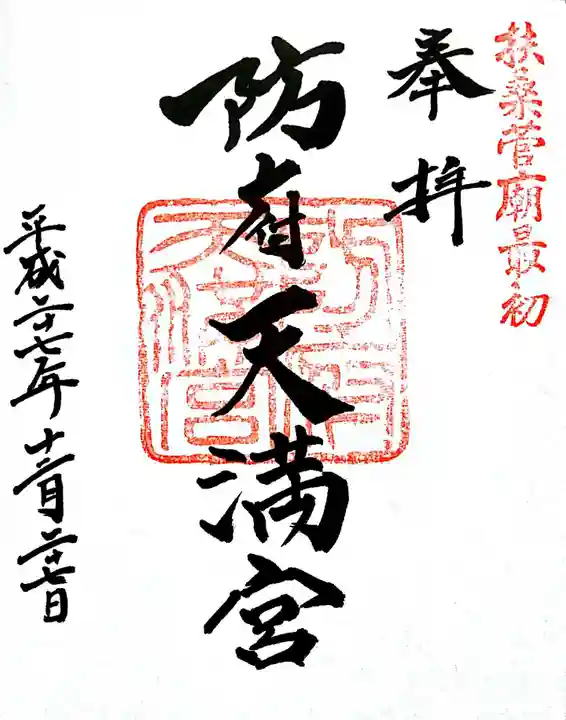 扶桑菅廟最初
奉拝
防府天満宮
平成二十七年十二月二十七日
防府天満宮